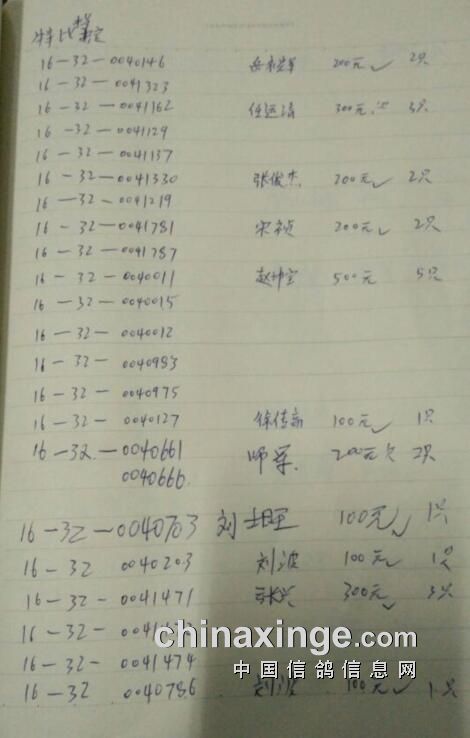 特比
16-32-0040146 200元✓ 2只
16-32-0041323
16-32-0041162 任运涛 300元 3只
16-32-0041129
16-32-0041137
16-32-0041330 张俊杰 200元✓ 2只
16-32-0041219
16-32-0041781 宋祯 200元✓ 2只
16-32-0041787
16-32-0040011 500元 5只
16-32-0040015
16-32-0040012
16-32-0040983
16-32-0040975
16-32-0040127 100元✓ 1只
16-32-0040661 师军 200元 2只
0040666
16-32-0040703 100元✓ 1只
16-32 0040203 刘波 100元✓ 1只
16-32-0041471 张兴 300元✓ 3只
16-32-
chinaxinge.com
16-32-0041474
中国信鸽信息网
16-32 0040786 刘波 100元✓ 1只